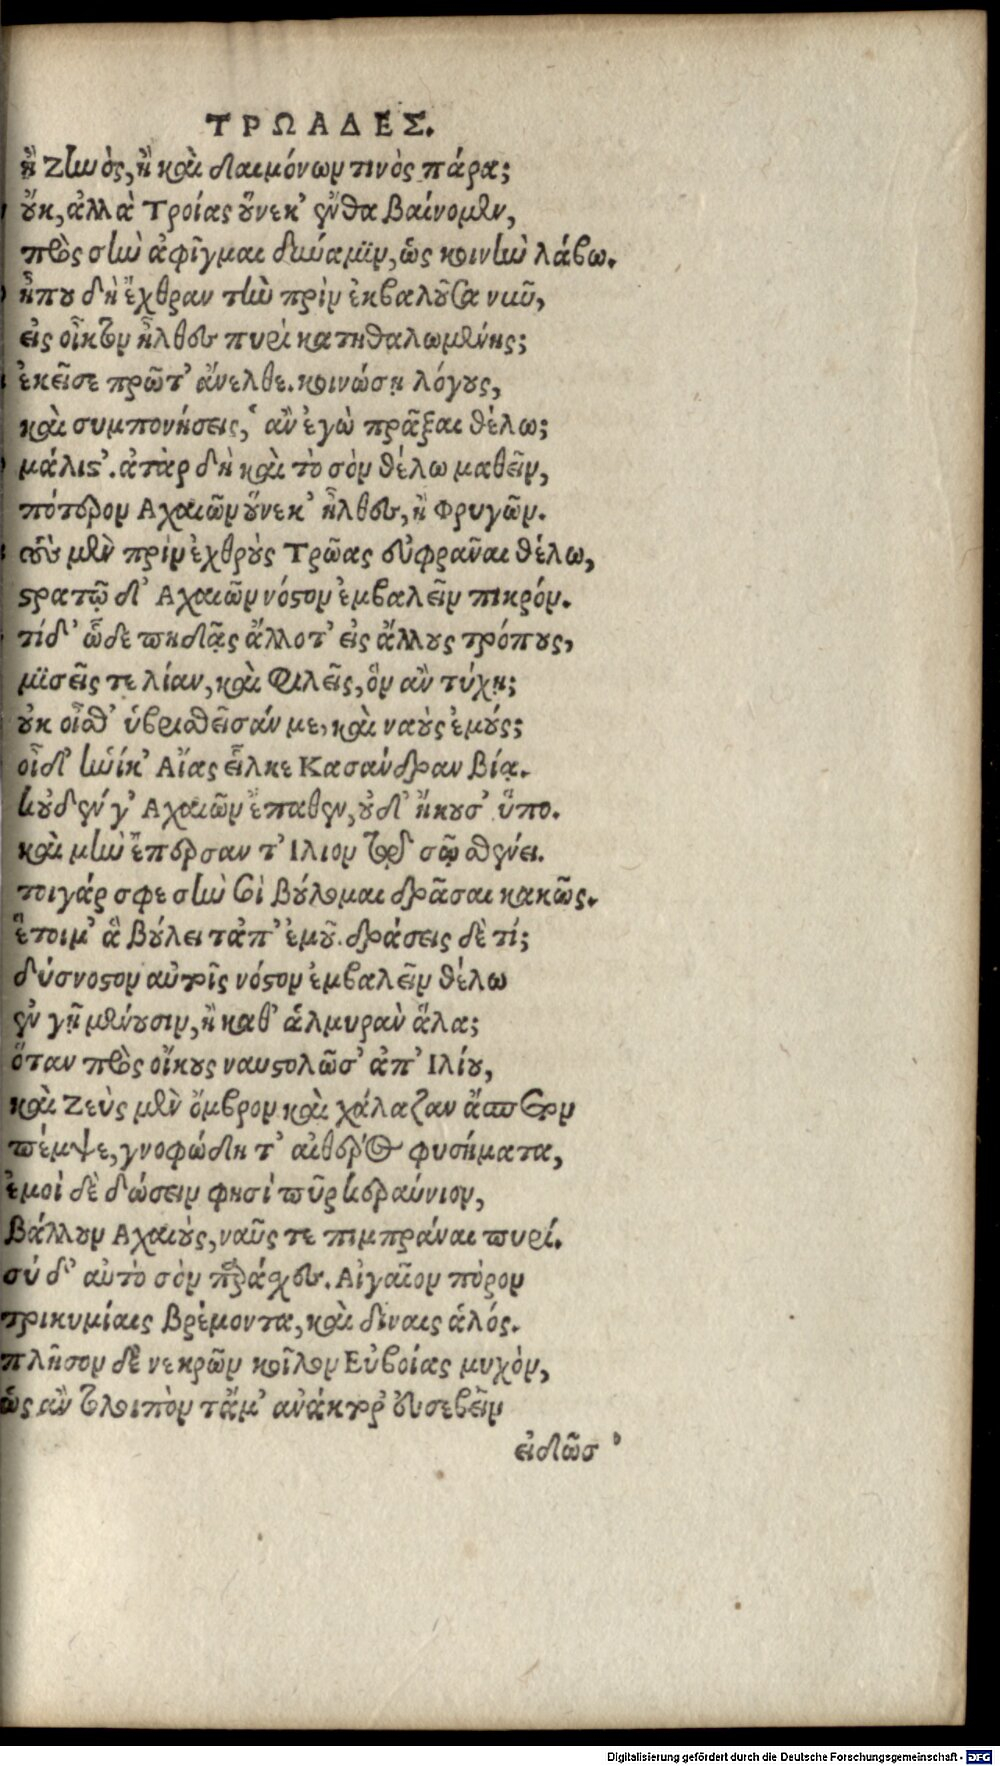 ΤΡΩΑΔΕΣ.
ἢ Ζηνὸς, ἢ καὶ δαιμόνων τινὸς πάρα;
οὔκ, ἀλλὰ Τροίας οὕνεκ' ἔνθα βαίνομεν,
πρὸς σὴν ἀφῖγμαι δύναμιν, ὡς κοινὴν λάβω.
ἦπου δὴ ἔχθραν τὴν πρὶν ἐκβαλοῦσα νιῦ,
εἰς οἶκτον ἦλθες πυρὶ κατηθαλωμένης;
ἐκεῖσε πρῶτ' ἄνελθε. κοινώσῃ λόγους,
καὶ συμπονήσεις, ἃ 'ν ἐγὼ πρᾶξαι θέλω;
μάλιστ'. ἀτὰρ δὴ καὶ τὸ σὸν θέλω μαθεῖν,
πότερον Αχαιῶν οὕνεκ' ἦλθες, ἢ Φρυγῶν.
τοὺς μὲν πρὶν ἐχθροὺς Τρῶας εὐφρᾶναι θέλω,
στρατῷ δ' Αχαιῶν νόστον ἐμβαλεῖν πικρόν.
τί δ' ὧδε πηδᾷς ἄλλοτ' εἰς ἄλλους τρόπους,
μισεῖς τε λίαν, καὶ φιλεῖς, ὃν ἂν τύχῃ;
οὐκ οἶσθ' ὑβρισθεῖσάν με, καὶ ναοὺς ἐμούς;
οἶδ' ἡνίκ' Αἴας εἷλκε Κασάνδραν βίᾳ.
κοὐδέν γ' Αχαιῶν ἔπαθεν, οὐδ' ἤκουσ' ὕπο.
καὶ μὴν ἔπερσαν τ' Ιλιον τῷδε σῷ σθένει.
τοιγάρ σφε σὺν σοὶ βούλομαι δρᾶσαι κακῶς.
ἕτοιμ' ἃ βούλει τἀπ' ἐμοῦ. δράσεις δὲ τί;
δύσνοστον αὐτοῖς νόστον ἐμβαλεῖν θέλω
ἐν γῇ μένουσιν, ἢ καθ' ἁλμυρὰν ἅλα;
ὅταν πρὸς οἴκους ναυστολῶσ' ἀπ' Ιλίου,
καὶ Ζεὺς μὲν ὄμβρον καὶ χάλαζαν ἄσπετον
πέμψε, γνοφώδη τ' αἰθέρος φυσήματα,
ἐμοὶ δὲ δώσειν φησὶ πῦρ κεραύνιον,
βάλλειν Αχαιοὺς, ναῦς τε πιμπράναι πυρί.
σύ δ' αὖ τὸ σὸν παράσχες. Αἰγαῖον πόρον
τρικυμίαις βρέμοντα, καὶ δίναις ἁλός.
πλῆσον δὲ νεκρῶν κοῖλον Εὐβοίας μυχὸν,
ὡς ἂν τολοιπὸν τἄμ' ἀνάκτορ' εὐσεβεῖν
εἰδῶσ'